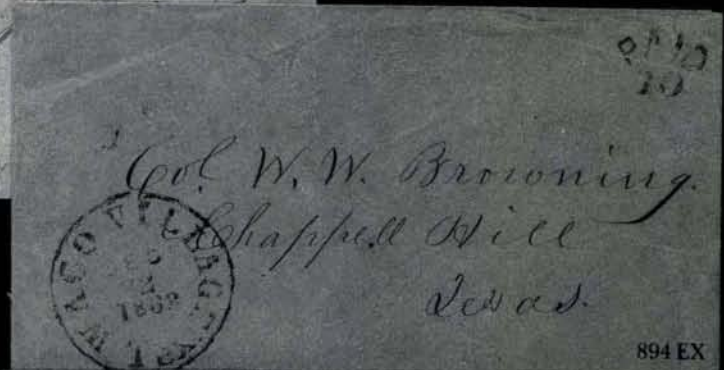 PAID
10
Col. W. W. Browning.
Chappell Hill
Texas.
WACO VILLAGE TEX.
1862
894 EX